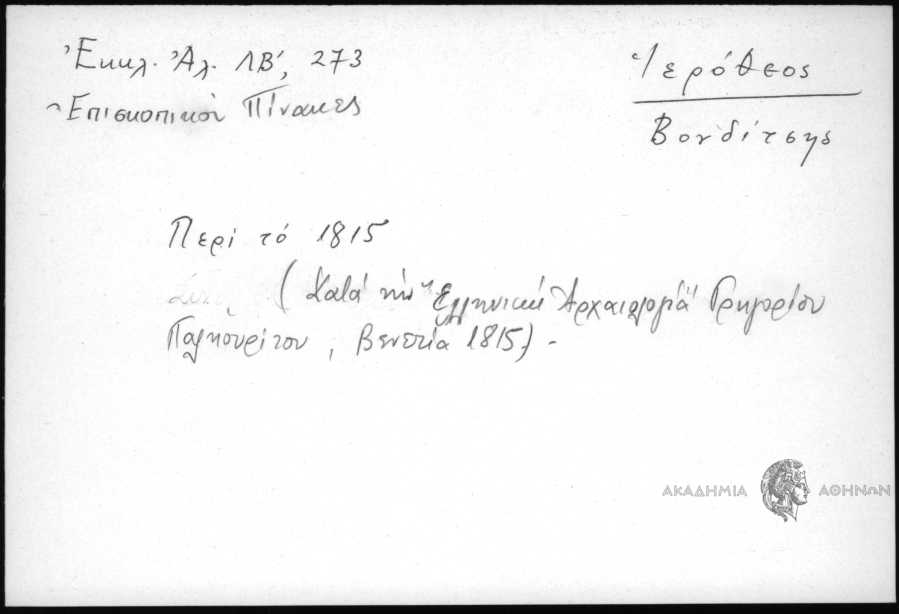 Ἐκκλ. Ἀλ. ΛΒ', 273
Ἐπισκοπικοὶ Πίνακες
Ἱερόθεος
Βονδίτσης
Περὶ τό 1815
(Κατά τήν "Ἑλληνική Ἀρχαιολογία" Γρηγορίου
Παλιουρίτου, Βενετία 1815) -
ΑΚΑΔΗΜΙΑ ΑΘΗΝΩΝ